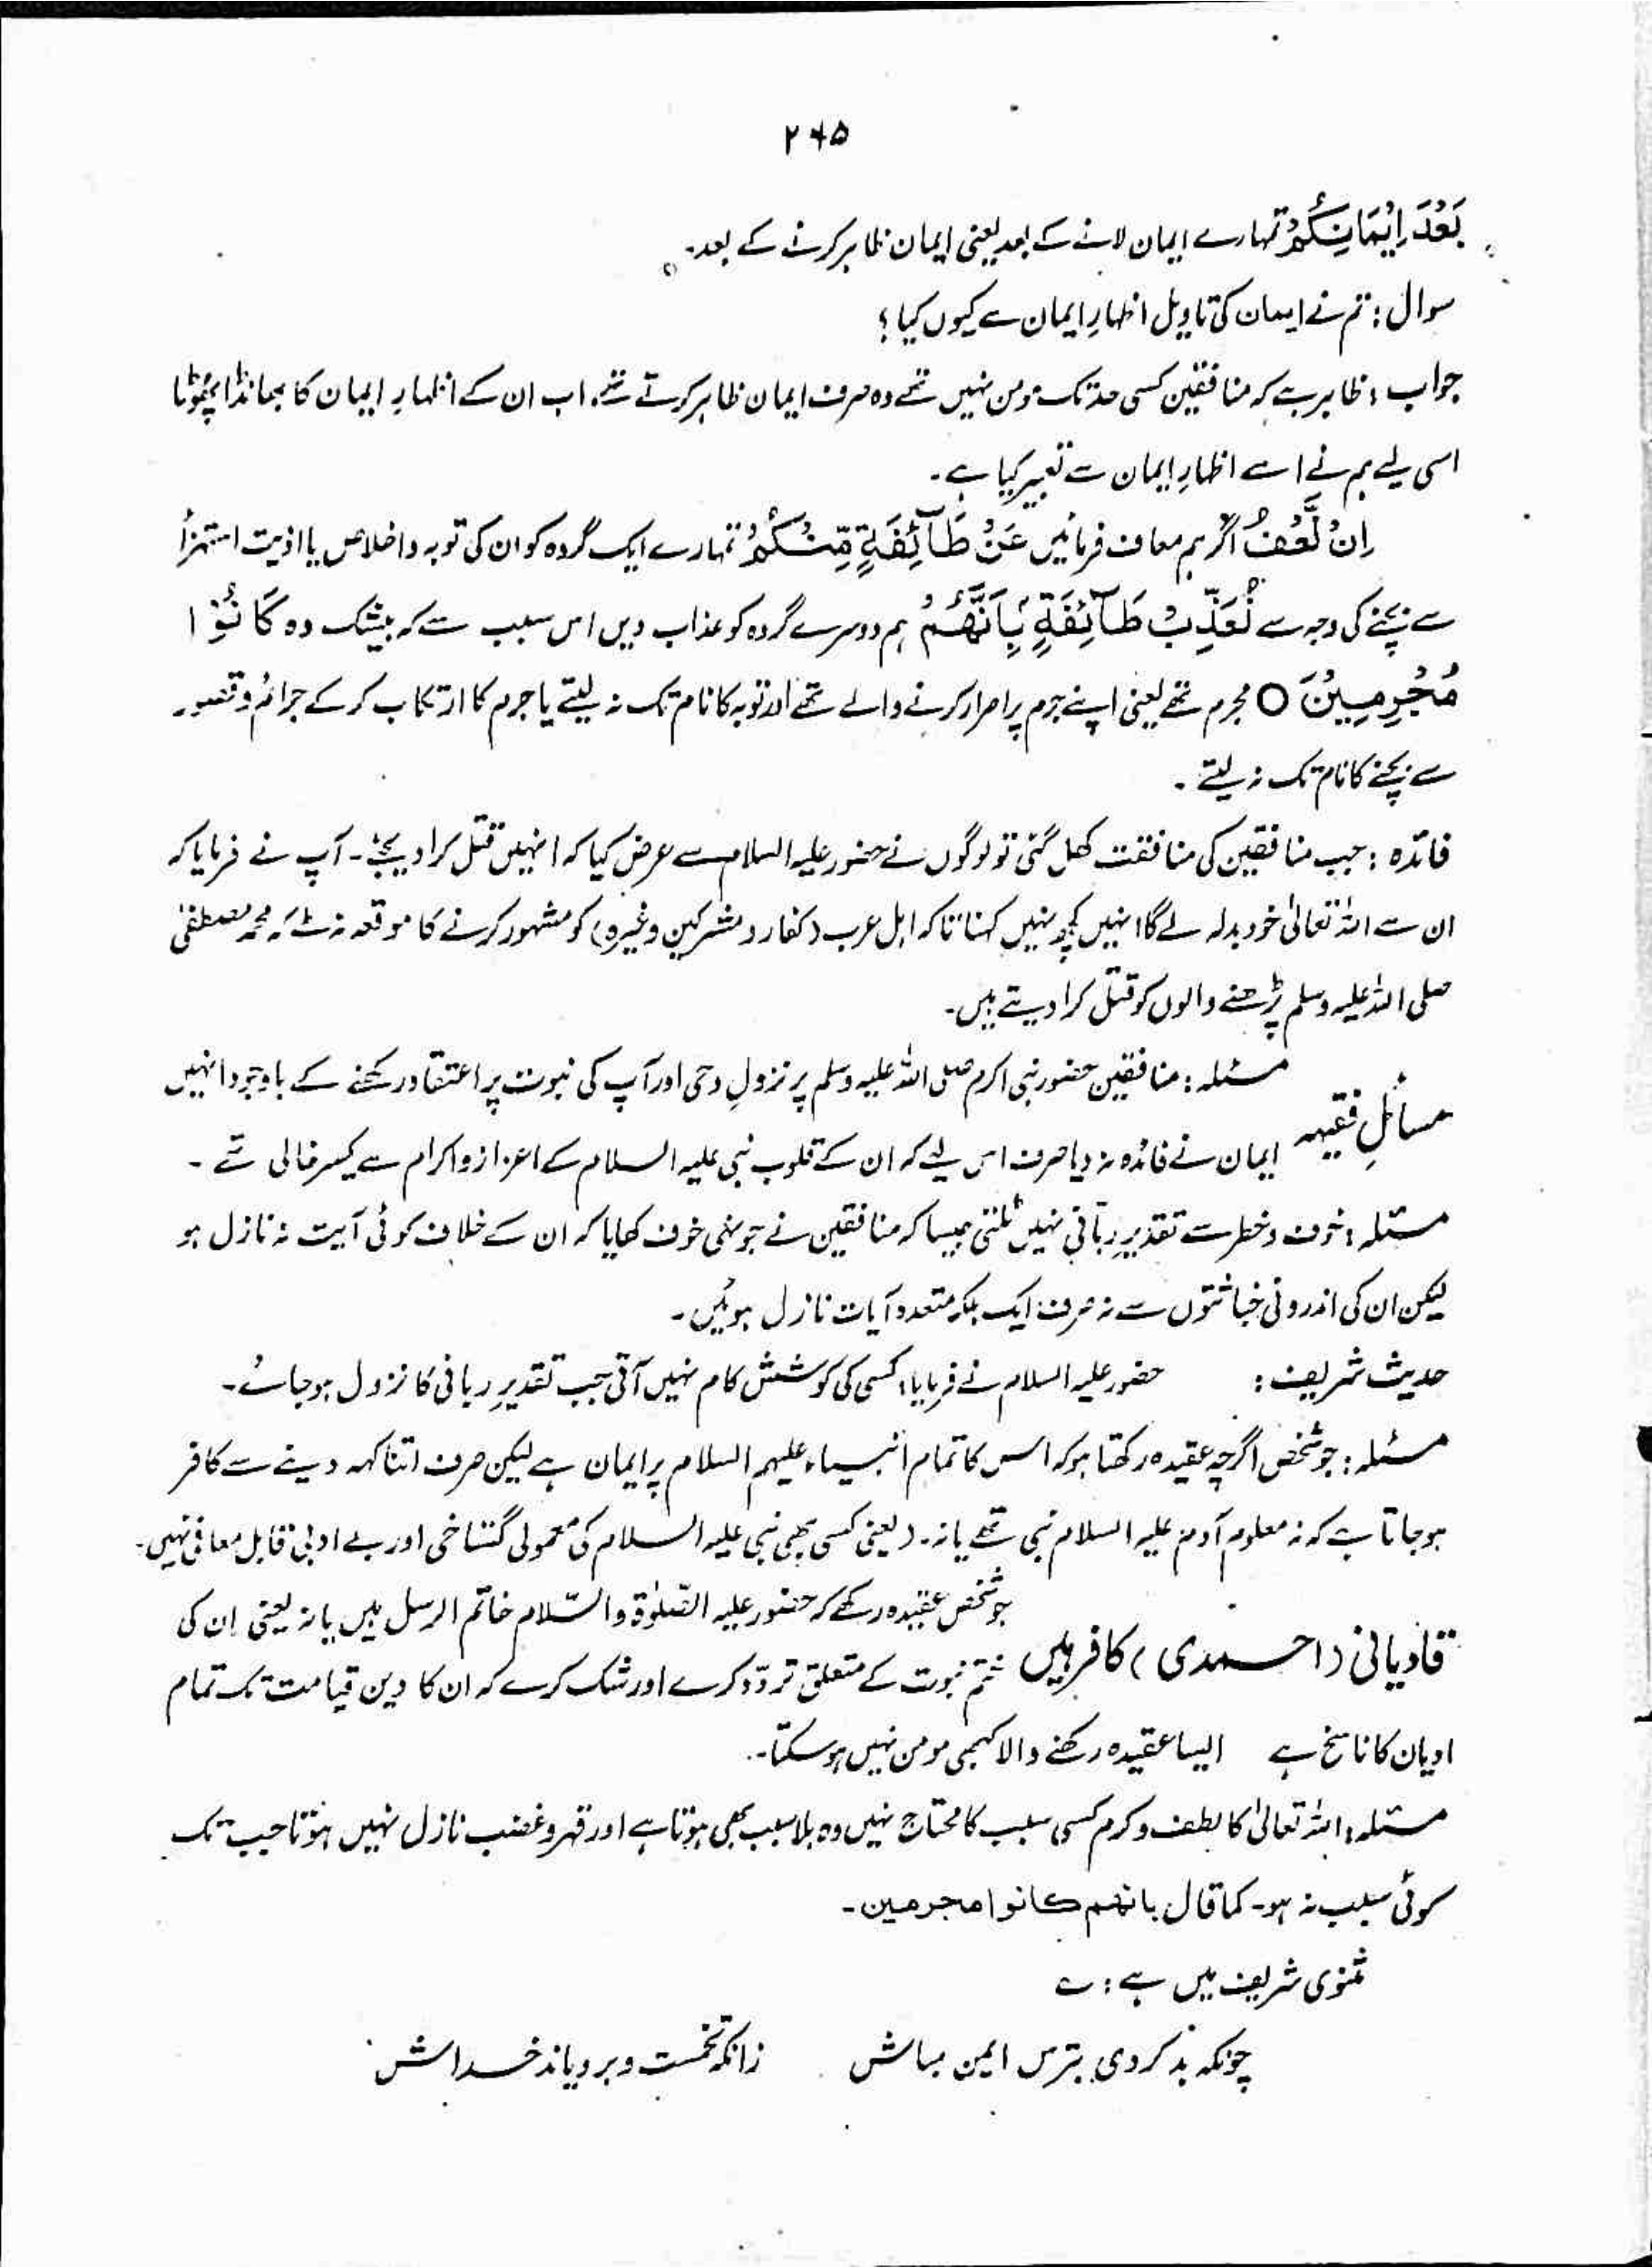 ۲۶۵
بَعْدَ اِيْمَانِكُمْ تمہارے ایمان لانے کے بعد یعنی ایمان ظاہر کرنے کے بعد۔
سوال : تم نے ایمان کی تاویل اظہارِ ایمان سے کیوں کیا ؟
جواب : ظاہر ہے کہ منافقین کسی حد تک مومن نہیں تھے وہ صرف ایمان ظاہر کرتے تھے، اب ان کے اظہارِ ایمان کا بھانڈا پھُوٹا
اسی لیے ہم نے اسے اظہارِ ایمان سے تعبیر کیا ہے۔
اِنْ نَّعْفُ اگر ہم معاف فرمائیں عَنْ طَآئِفَةٍ مِّنْكُمْ تمہارے ایک گروہ کو ان کی توبہ و اخلاص یا اذیت استہزأ
سے بچنے کی وجہ سے نُعَذِّبْ طَآئِفَةً بِاَنَّهُمْ ہم دوسرے گروہ کو عذاب دیں اس سبب سے کہ بیشک وہ كَانُوْا
مُجْرِمِيْنَ ○ مجرم تھے یعنی اپنے جرم پر اصرار کرنے والے تھے اور توبہ کا نام تک نہ لیتے یا جرم کا ارتکاب کر کے جرائم و قصور
سے بچنے کا نام تک نہ لیتے ۔
فائدہ : جب منافقین کی منافقت کھل گئی تو لوگوں نے حضور علیہ السلام سے عرض کیا کہ انہیں قتل کرا دیجئے۔ آپ نے فرمایا کہ
ان سے اللہ تعالیٰ خود بدلہ لے گا انہیں کچھ نہیں کہنا تاکہ اہل عرب (کفار و مشرکین وغیرہ) کو مشہور کرنے کا موقعہ نہ ملے کہ محمد مصطفیٰ
صلی اللہ علیہ وسلم پڑھنے والوں کو قتل کرا دیتے ہیں۔
مسائلِ فقہیہ مسئلہ : منافقین حضور نبی اکرم صلی اللہ علیہ وسلم پر نزولِ وحی اور آپ کی نبوت پر اعتقاد رکھنے کے باوجود انہیں
ایمان نے فائدہ نہ دیا صرف اس لیے کہ ان کے قلوب نبی علیہ السلام کے اعزاز و اکرام سے یکسر خالی تھے ۔
مسئلہ : خوف و خطر سے تقدیرِ ربّانی نہیں ٹلتی جیسا کہ منافقین نے جونہی خوف کھایا کہ ان کے خلاف کوئی آیت نہ نازل ہو
لیکن ان کی اندرونی خباثتوں سے نہ صرف ایک بلکہ متعدد آیات نازل ہوئیں۔
حدیث شریف : حضور علیہ السلام نے فرمایا : کسی کی کوشش کام نہیں آتی جب تقدیرِ ربانی کا نزول ہو جائے۔
مسئلہ : جو شخص اگرچہ عقیدہ رکھتا ہو کہ اس کا تمام انبیاء علیہم السلام پر ایمان ہے لیکن صرف اتنا کہہ دینے سے کافر
ہو جاتا ہے کہ نہ معلوم آدم علیہ السلام نبی تھے یا نہ۔ (یعنی کسی بھی نبی علیہ السلام کی معمولی گستاخی اور بے ادبی قابل معافی نہیں۔
قادیانی (احمدی) کافر ہیں جو شخص عقیدہ رکھے کہ حضور علیہ الصّلوٰۃ والسّلام خاتم الرسل ہیں یا نہ یعنی ان کی
ختم نبوت کے متعلق تردّد کرے اور شک کرے کہ ان کا دین قیامت تک تمام
ادیان کا ناسخ ہے ایسا عقیدہ رکھنے والا کبھی مومن نہیں ہو سکتا۔
مسئلہ : اللہ تعالیٰ کا لطف و کرم کسی سبب کا محتاج نہیں وہ بلا سبب بھی ہوتا ہے اور قہر و غضب نازل نہیں ہوتا جب تک
کوئی سبب نہ ہو۔ کما قال بانھم کانوا مجرمین۔
مثنوی شریف میں ہے : ؎
چونکہ بد کردی بترس ایمن مباش زانکہ تخمست و برویاند خداش